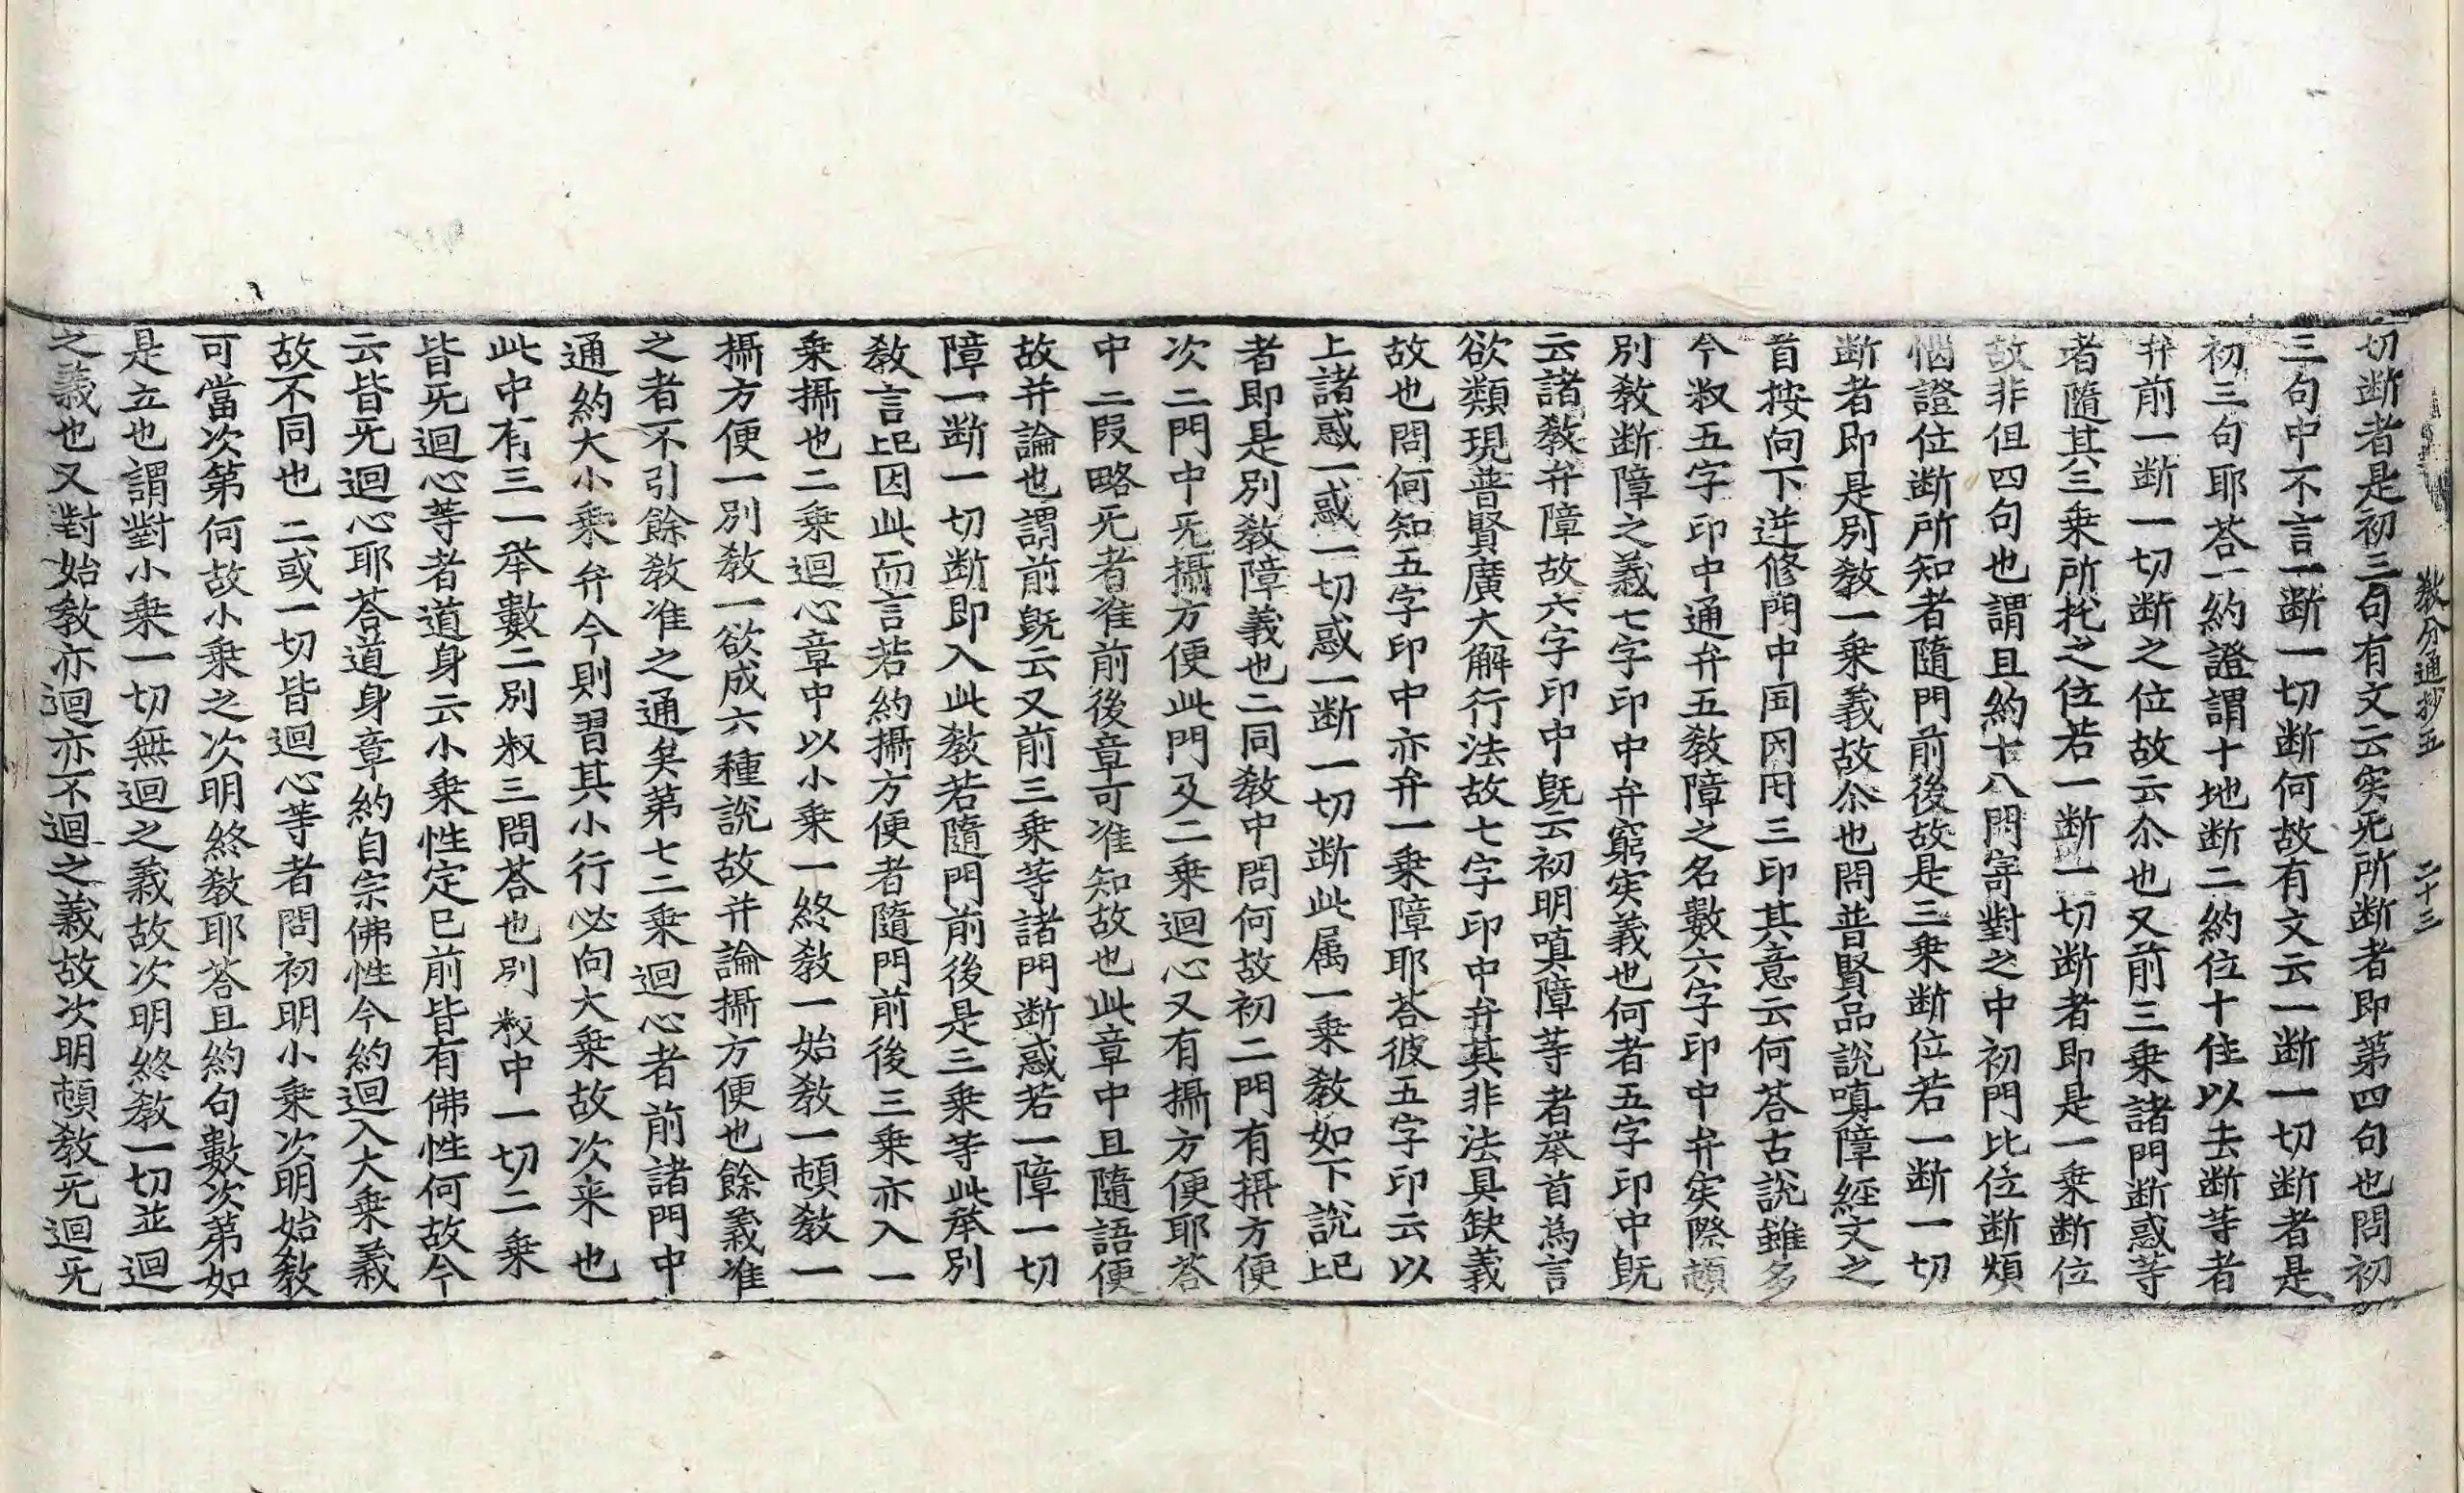 教分通抄五 二十三
切断者是初三句有文云実旡所断者即苐四句也問初
三句中不言一断一切断何故有文云一断一切断者是
初三句耶荅一約證謂十地断二約位十住以去断等者
弁前一断一切断之位故云尒也又前三乗諸門断惑等
者隨其三乗所托之位若一断一切断者即是一乗断位
故非但四句也謂且約十八門寄對之中初門比位断煩
惱證位断所知者隨門前後故是三乗断位若一断一切
断者即是別教一乗義故尒也問普賢品說嗔障經文之
首按向下逆修門中国因円三印其意云何荅古說雖多
今叙五字印中通弁五教障之名數六字印中弁実際頓
別教断障之義七字印中弁窮実義也何者五字印中旣
云諸教弁障故六字印中旣云初明嗔障等者举首為言
欲類現普賢廣大解行法故七字印中弁其非法具缺義
故也問何知五字印中亦弁一乗障耶荅彼五字印云以
上諸惑一惑一切惑一断一切断此属一乗教如下說上
者即是別教障義也二同教中問何故初二門有攝方便
次二門中旡攝方便此門及二乗迴心又有攝方便耶荅
中二叚略旡者准前後章可准知故也此章中且隨語便
故并論也謂前旣云又前三乗等諸門断惑若一障一切
障一断一切断即入此教若隨門前後是三乗等此举別
教言因此而言若約攝方便者隨門前後三乗亦入一
乗攝也二乗迴心章中以小乗一終教一始教一頓教一
攝方便一別教一欲成六種說故并論攝方便也餘義准
之者不引餘教准之通矣苐七二乗迴心者前諸門中
通約大小乗弁今則習其小行必向大乗故次来也
此中有三一举數二別叙三問荅也別叙中一切二乗
皆旡迴心等者道身云小乗性定已前皆有佛性何故今
云皆旡迴心耶荅道身章約自宗佛性今約迴入大乗義
故不同也二或一切皆迴心等者問初明小乗次明始教
可當次第何故小乗之次明終教耶荅且約句數次苐如
是立也謂對小乗一切無迴之義故次明終教一切並迴
之義也又對始教亦迴亦不迴之義故次明頓教旡迴旡